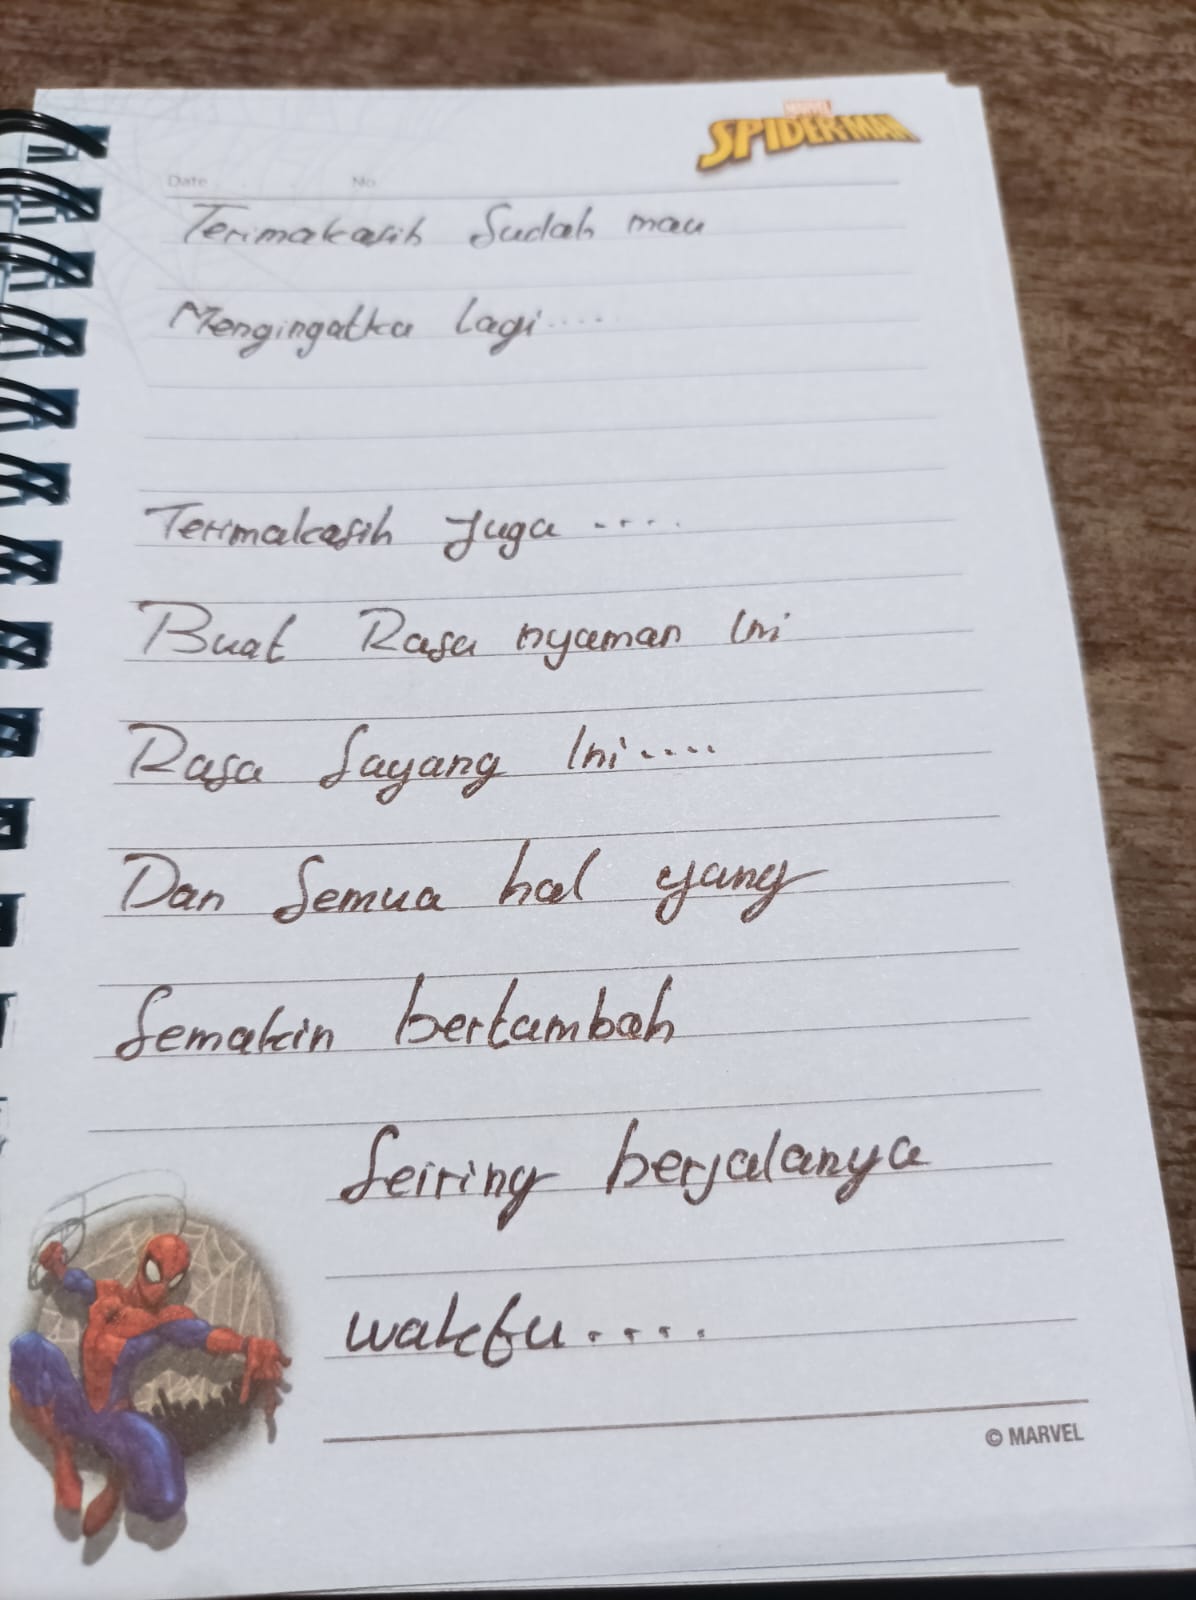 MARVEL
SPIDER-MAN
Date No
Terimakasih Sudah mau
Mengingatku lagi....
Terimakasih Juga ....
Buat Rasa nyaman Ini
Rasa Sayang Ini....
Dan Semua hal yang
Semakin bertambah
Seiring berjalanya
waktu....
© MARVEL